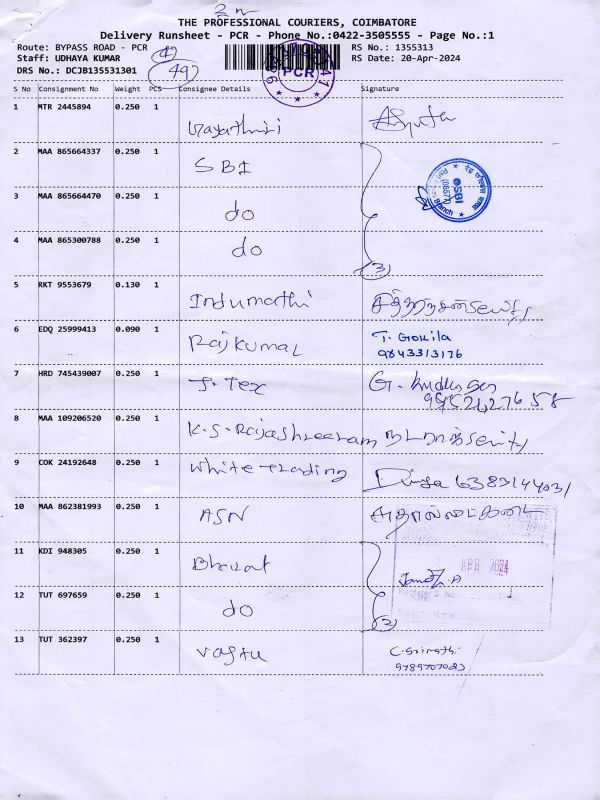 THE PROFESSIONAL COURIERS, COIMBATORE
Delivery Runsheet - PCR - Phone No.:0422-3505555 - Page No.:1
Route: BYPASS ROAD - PCR
RS No.: 1355313
Staff: UDHAYA KUMAR
RS Date: 20-Apr-2024
DRS No.: DCJB135531301
49
PCR
S No Consignment No Weight PCS Consignee Details Signature
1 MTR 2445894 0.250 1
Gayathiri
2 MAA 865664337 0.250 1
SBI
3 MAA 865664470 0.250 1
do
4 MAA 865300788 0.250 1
do
(3)
SBI
Branch
5 RKT 9553679 0.130 1
Indumathi
6 EDQ 25999413 0.090 1
Rajkumar T. Gokila
9843313176
7 HRD 745439007 0.250 1
J. Tex G.
8 MAA 109206520 0.250 1
K.S. Rajashreeram
9 COK 24192648 0.250 1
White Trading 6383144031
10 MAA 862381993 0.250 1
ASN
11 KDI 948305 0.250 1
Bharat
APR 2024
12 TUT 697659 0.250 1
do
(2)
13 TUT 362397 0.250 1
Vastu C. Srimathi
9789707023